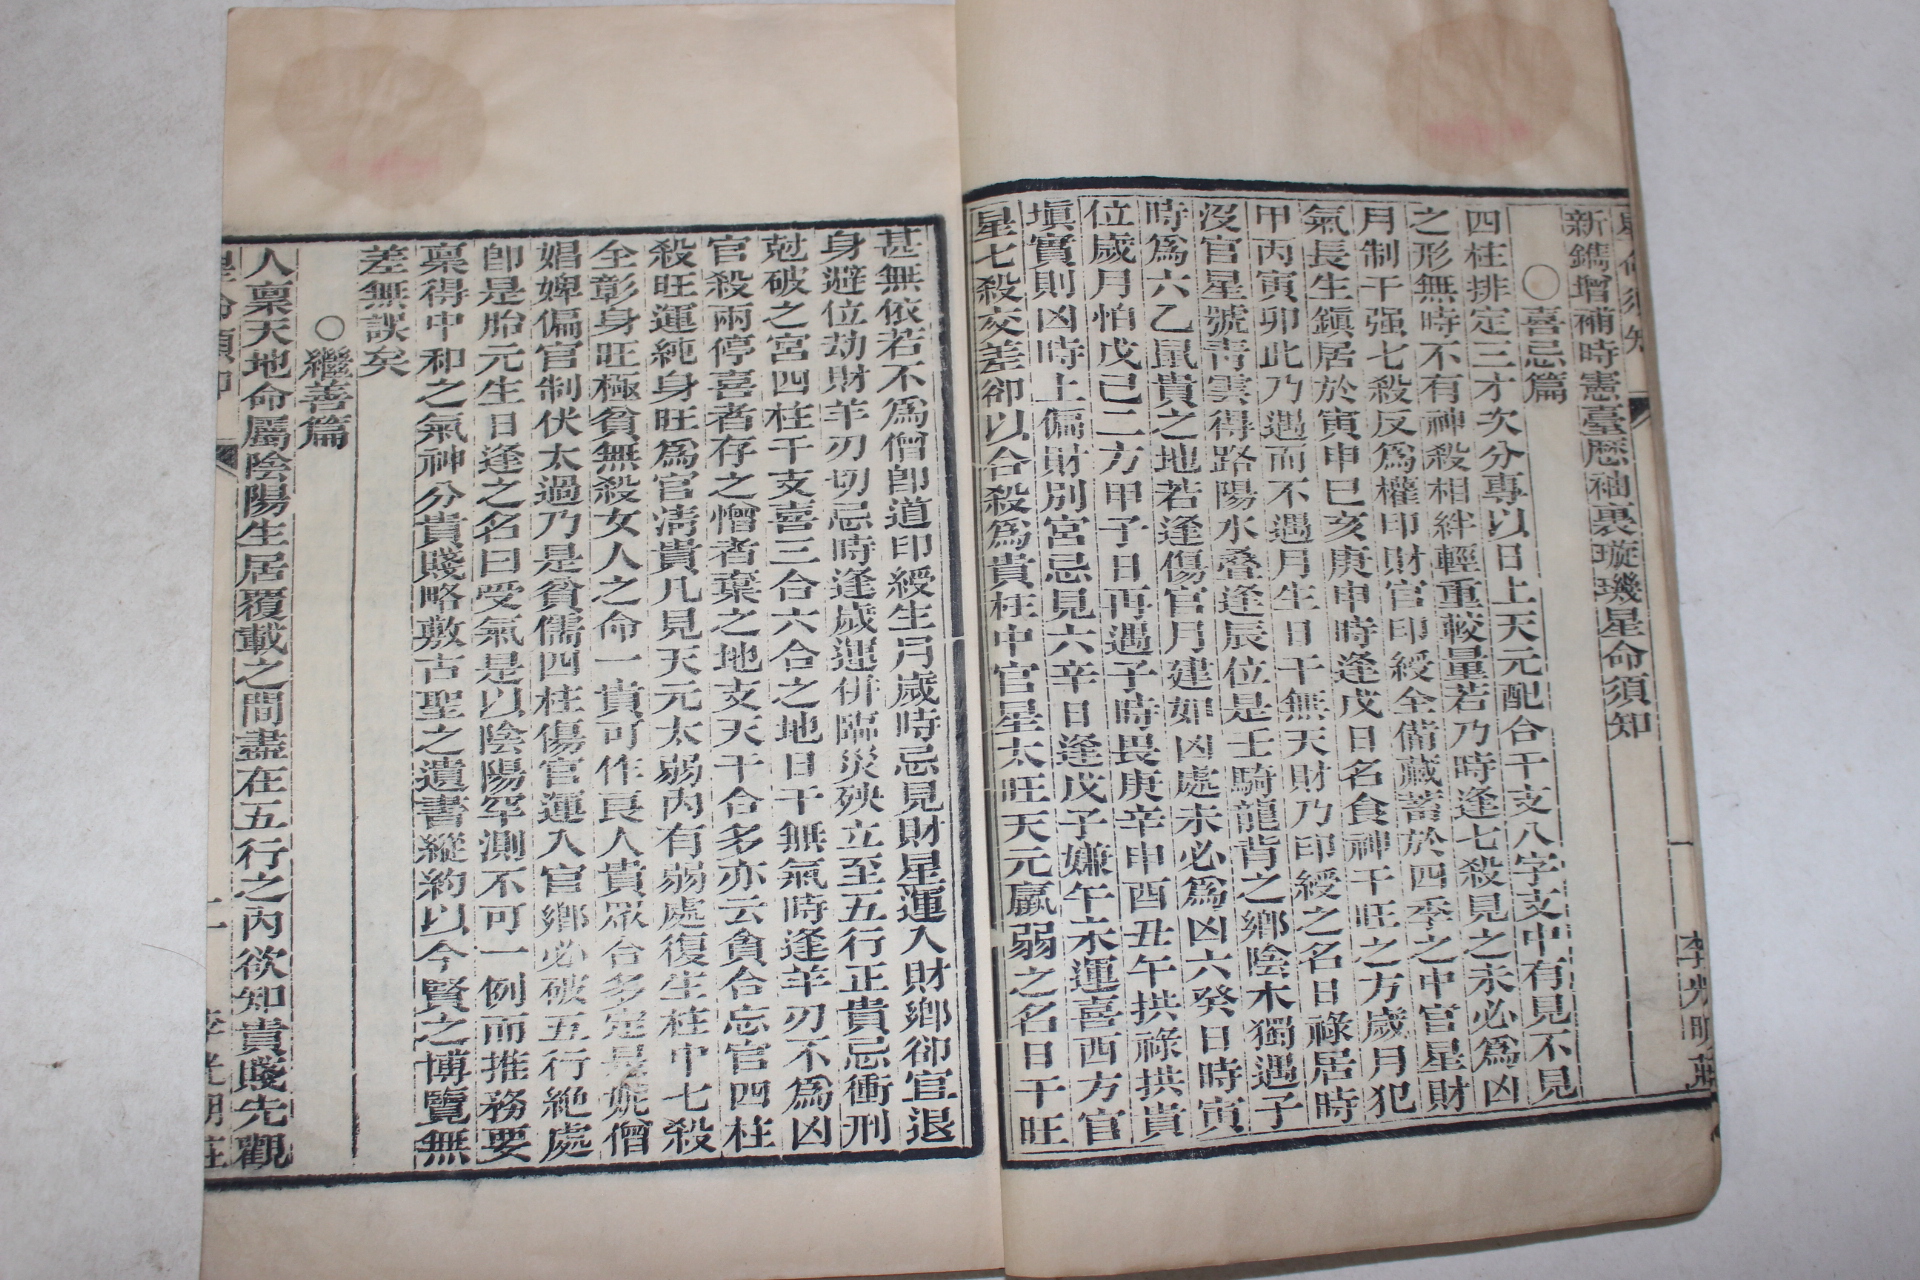 新鐫增補時憲臺曆袖裏璇璣星命須知
○喜忌篇
四柱排定三才次分專以日上天元配合干支八字支中有見不見
之形無時不有神殺相絆輕重較量若乃時逢七殺見之未必為凶
月制干强七殺反為權印財官印綬全備藏蓄於四季之中官星財
氣長生鎮居於寅申巳亥庚申時逢戊日名食神干旺之方歲月犯
甲丙寅卯此乃遇而不遇月生日干無天財乃印綬之名日祿居時
沒官星號靑雲得路陽水疊逢辰位是壬騎龍背之鄉陰木獨遇子
時爲六乙鼠貴之地若逢傷官月建如凶處未必爲凶六癸日時寅
位歲月怕戊己二方甲子日再遇子時畏庚辛申酉丑午拱祿拱貴
塡實則凶時上偏財別宮忌見六辛日逢戊子嫌午未運喜西方官
星七殺交差卻以合殺爲貴柱中官星太旺天元羸弱之名日干旺
甚無依若不爲僧卽道印綬生月歲時忌見財星運入財鄉卻宜退
身避位劫財羊刃切忌時逢歲運併臨災殃立至五行正貴忌衝刑
尅破之宮四柱干支喜三合六合之地日干無氣時逢羊刃不爲凶
官殺兩停喜者存之憎者棄之地支天干合多亦云貪合忘官四柱
殺旺運純身旺爲官淸貴凡見天元太弱內有弱處復生柱中七殺
全彰身旺極貧無殺女人之命一貴可作良人貴眾合多定是娼僧
娼婢偏官制伏太過乃是貧儒四柱傷官運入官鄉必破五行絶處
卽是胎元生日逢之名曰受氣是以陰陽罕測不可一例而推務要
稟得中和之氣神分貴賤略敷古聖之遺書縱約以今賢之博覽無
差無誤矣
○繼善篇
人稟天地命屬陰陽生居覆載之間盡在五行之內欲知貴賤先觀